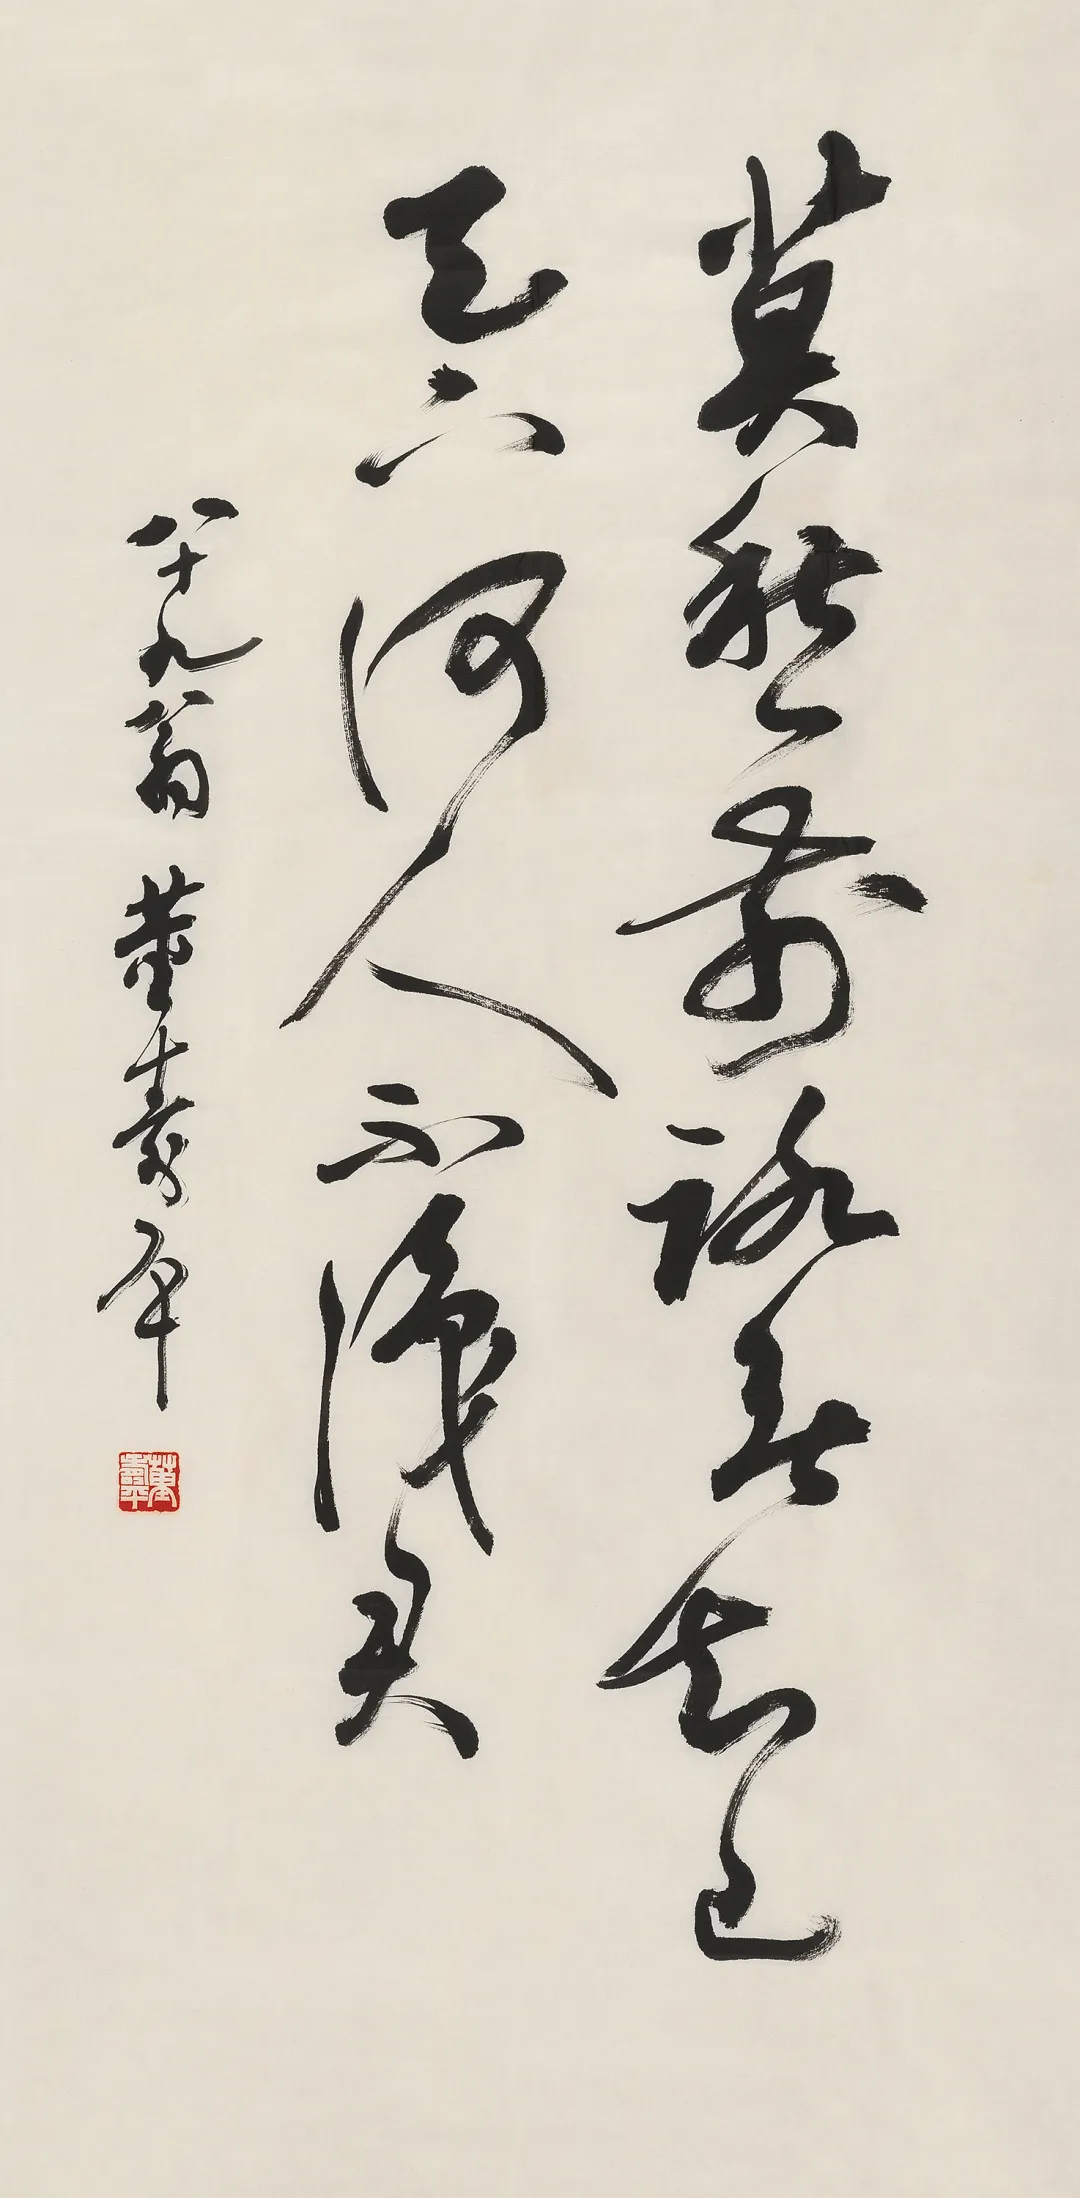 莫愁前路无知己
天下何人不识君
八十九翁 董寿平
董寿平